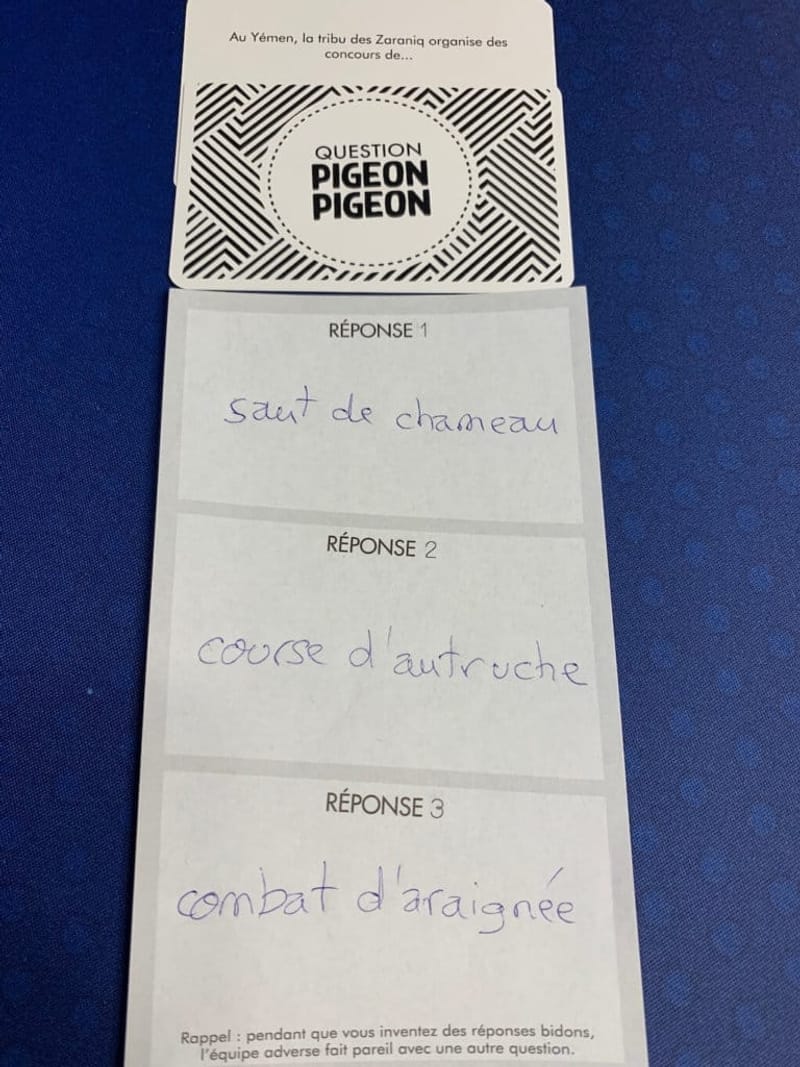 Au Yémen, la tribu des Zaraniq organise des
concours de...
QUESTION
PIGEON
PIGEON
RÉPONSE 1
saut de chameau
RÉPONSE 2
course d'autruche
RÉPONSE 3
combat d'araignée
Rappel : pendant que vous inventez des réponses bidons,
l'équipe adverse fait pareil avec une autre question.